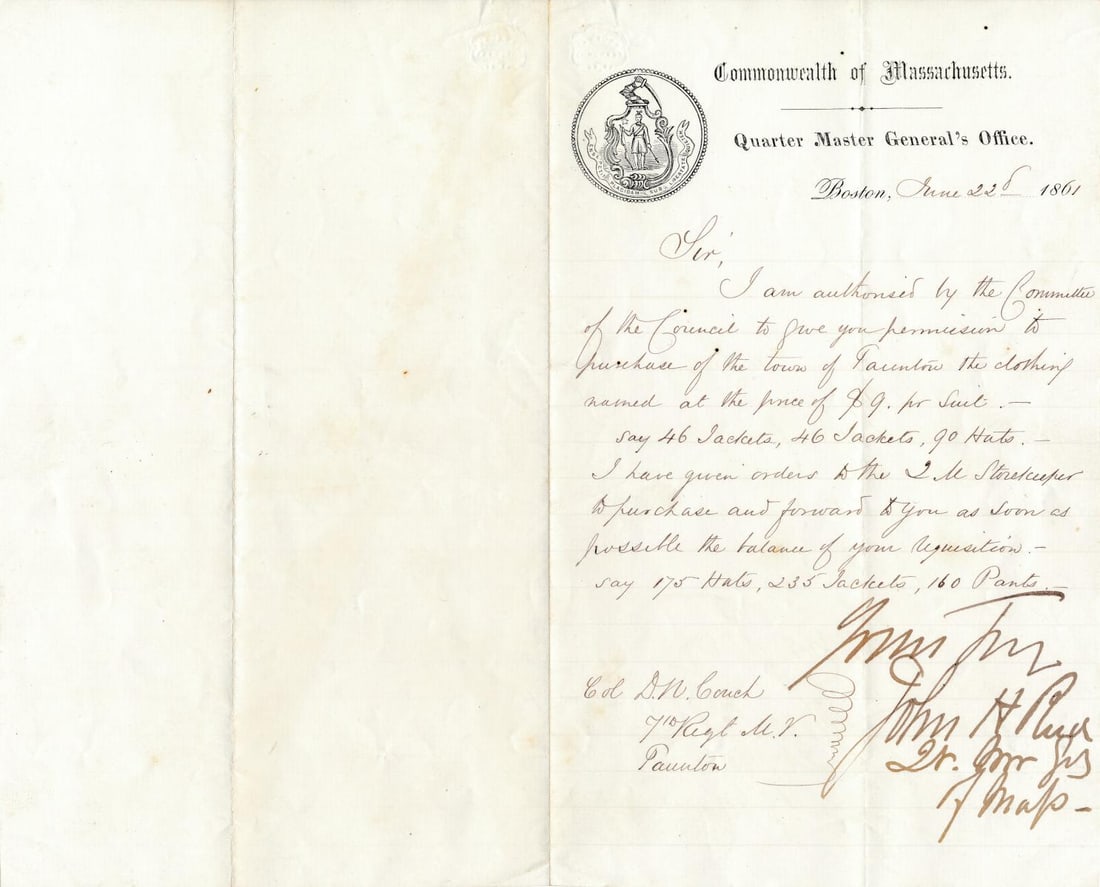 Commonwealth of Massachusetts.
Quarter Master General's Office.
Boston, June 22d 1861
Sir,
I am authorised by the Committee
of the Council to give you permission to
purchase of the town of Taunton the clothing
named at the price of $9. pr Suit. —
say 46 Jackets, 46 Jackets, 90 Hats. —
I have given orders to the Q M Storekeeper
to purchase and forward to you as soon as
possible the balance of your requisition. —
say 175 Hats, 235 Jackets, 160 Pants. —
Yours Try
John H Reed
Qr. Mr Gen
of Mass —
Col D. N. Couch
7th Regt M. V.
Taunton